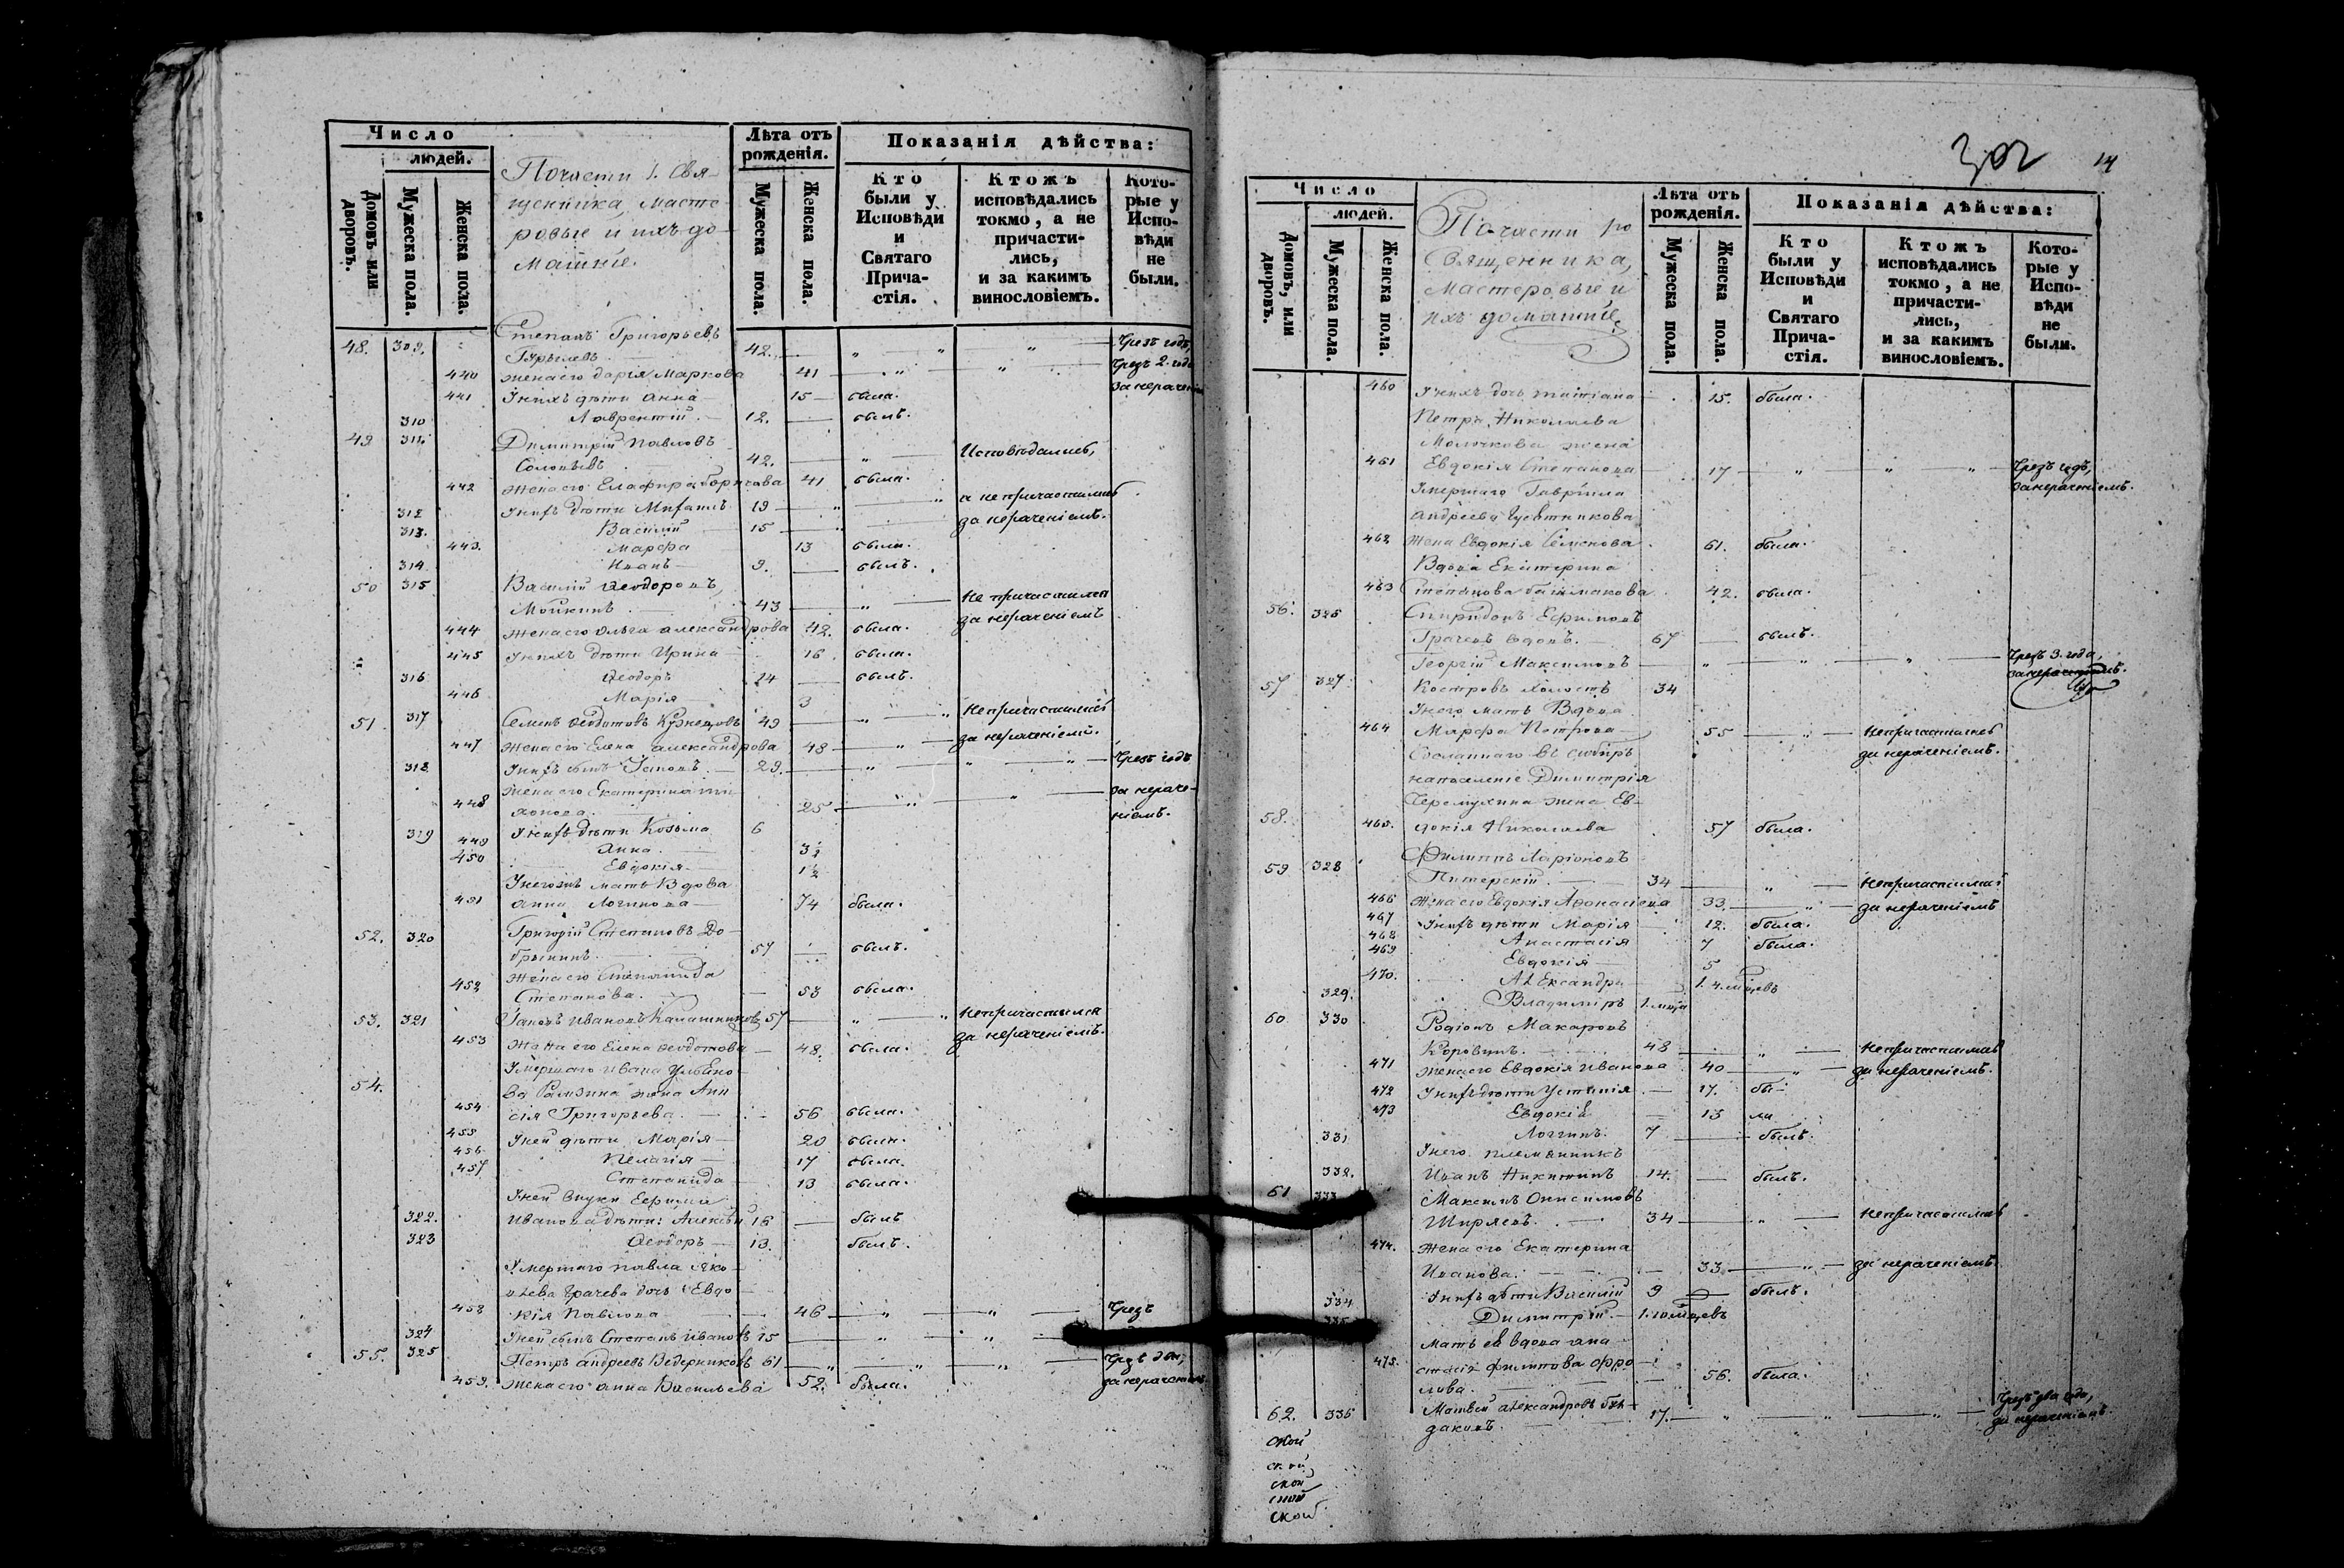 Число
людей.
Домовъ или дворовъ.
Мужеска пола.
Женска пола.
Почасти 1. Свя-
щенника, Масте-
ровые и ихъ до-
машніе.
Лѣта отъ рожденія.
Мужеска пола.
Женска пола.
Показанія дѣйства:
Кто были у Исповѣди и Святаго Прича-стія.
Ктожъ исповѣдались токмо, а не причасти-лись, и за какимъ винословіемъ.
Кото-рые у Испо-вѣди не были.
Степанъ Григорьевъ
48. 309. 42. Чрезъ годъ,
440 жена его Дарія Маркова 41 Чрезъ 2. года
441 У нихъ дѣти Анна 15 была. за нераченіе
310 Лаврентій 12. былъ.
49 311 Димитрій Павловъ
42. Исповѣдались,
442 жена его 41 была.
312 У нихъ дѣти 19 а не причастились
313. Василій 15 за нераченіемъ.
443. Марфа 13 была.
314 Иванъ 9. былъ.
50 315 Василій Ѳеодоровъ
43 не причастился
444 жена его Ольга Александрова 42. была. за нераченіемъ
445 У нихъ дѣти Ирина 16 была.
316 Ѳеодоръ 14 былъ.
446 Марія 3
51. 317 Семенъ Ѳедотовъ Кузнецовъ 49 не причастились
447 Жена его Елена Александрова 48 за нераченіемъ.
318 У нихъ сынъ 29. Чрезъ годъ
жена его Екатерина за нераче-
448 25 ніемъ.
319 У нихъ дѣти Козьма 6
449 Анна 3½
450 Евдокія 1½
У него мать Вдова
451 Анна Логинова 74 была.
Григорій Степановъ До-
52. 320 брынинъ. 57 былъ.
Жена его Степанида
452 Степанова. 53 была.
53. 321 Иванъ Ивановъ Калашниковъ 57 не причастился
453 Жена его Елена Ѳеодотова 48. была. за нераченіемъ.
Умершаго Ивана
54. жена
454 Григорьева. 56 была.
455 У ней дѣти Марія 20 была.
456 Пелагія 17 была.
457 Степанида 13 была.
У ней внуки Ефима
322. Иванова дѣти: Алексѣй 16 былъ
323 Ѳеодоръ 13. былъ.
Умершаго Павла Яко-
влева Грачева дочь Евдо-
458 кія Павлова 46 Чрезъ
324 У ней сынъ Степанъ Ивановъ 15
55. 325 Петръ Андреевъ Ведерниковъ 61
459. жена его Анна Васильева 52. была. за нераченіемъ
302 14
Число
людей.
Домовъ, или дворовъ.
Мужеска пола.
Женска пола.
Почасти
Священника,
Мастеровые и
ихъ домашніе
Лѣта отъ рожденія.
Мужеска пола.
Женска пола.
Показанія дѣйства:
Кто были у Исповѣди и Святаго Прича-стія.
Ктожъ исповѣдались токмо, а не причасти-лись, и за какимъ винословіемъ.
Кото-рые у Испо-вѣди не были.
460 У нихъ дочь Татіана 15. была.
Петра Николаева
Молочкова жена
461 Евдокія Степанова 17 Чрезъ годъ,
Умершаго Гавріила за нераченіемъ.
Андреева
462 жена Евдокія Семенова 61. была.
Вдова Екатерина
463 Степанова Башмакова 42. была.
56. 326 Спиридонъ Ефимовъ
Грачевъ вдовъ. 67 былъ.
Георгій Максимовъ Чрезъ 3. года,
57 327 Костровъ холостъ 34 за нераченіемъ.
У него мать Вдова
464 Марфа Петрова 55 не причастилась
Сосланнаго въ Сибирь за нераченіемъ.
на поселеніе Димитрія
Черемухина жена Ев-
58. 465. докія Николаева 57 была.
Филиппъ Ларіоновъ
59 328 Питерскій. 34 не причастились
466 Жена его Евдокія Аѳонасіева 33. за нераченіемъ
467 У нихъ дѣти Марія 12. была.
468 Анастасія 7 была.
469 Евдокія 5
470. Александра 1. 4. мѣсцевъ
329. Владиміръ 1. мѣсца
60 330 Родіонъ Макаровъ
Коровинъ. 48 не причастились
471 жена его Евдокія Иванова 40 за нераченіемъ.
472 У нихъ дѣти Устинія 17. бы-
473 Евдокія 13 ли
331 Логгинъ. 7 былъ.
У него племянникъ
332. Иванъ Никитинъ 14. былъ.
61 333 Максимъ Онисимовъ
Ширяевъ. 34 не причастились
474. Жена его Екатерина
Иванова. 33 за нераченіемъ
334 У нихъ дѣти Василій 9 былъ.
335 Димитрій 1. 10 мѣсцевъ
Мать ея вдова Ана-
475. стасія Филипова Фро-
лова. 56. была.
62. 336 Матвей Александровъ
17. Чрезъ два года,
за нераченіемъ.
ской
ской
ской
ской
ской